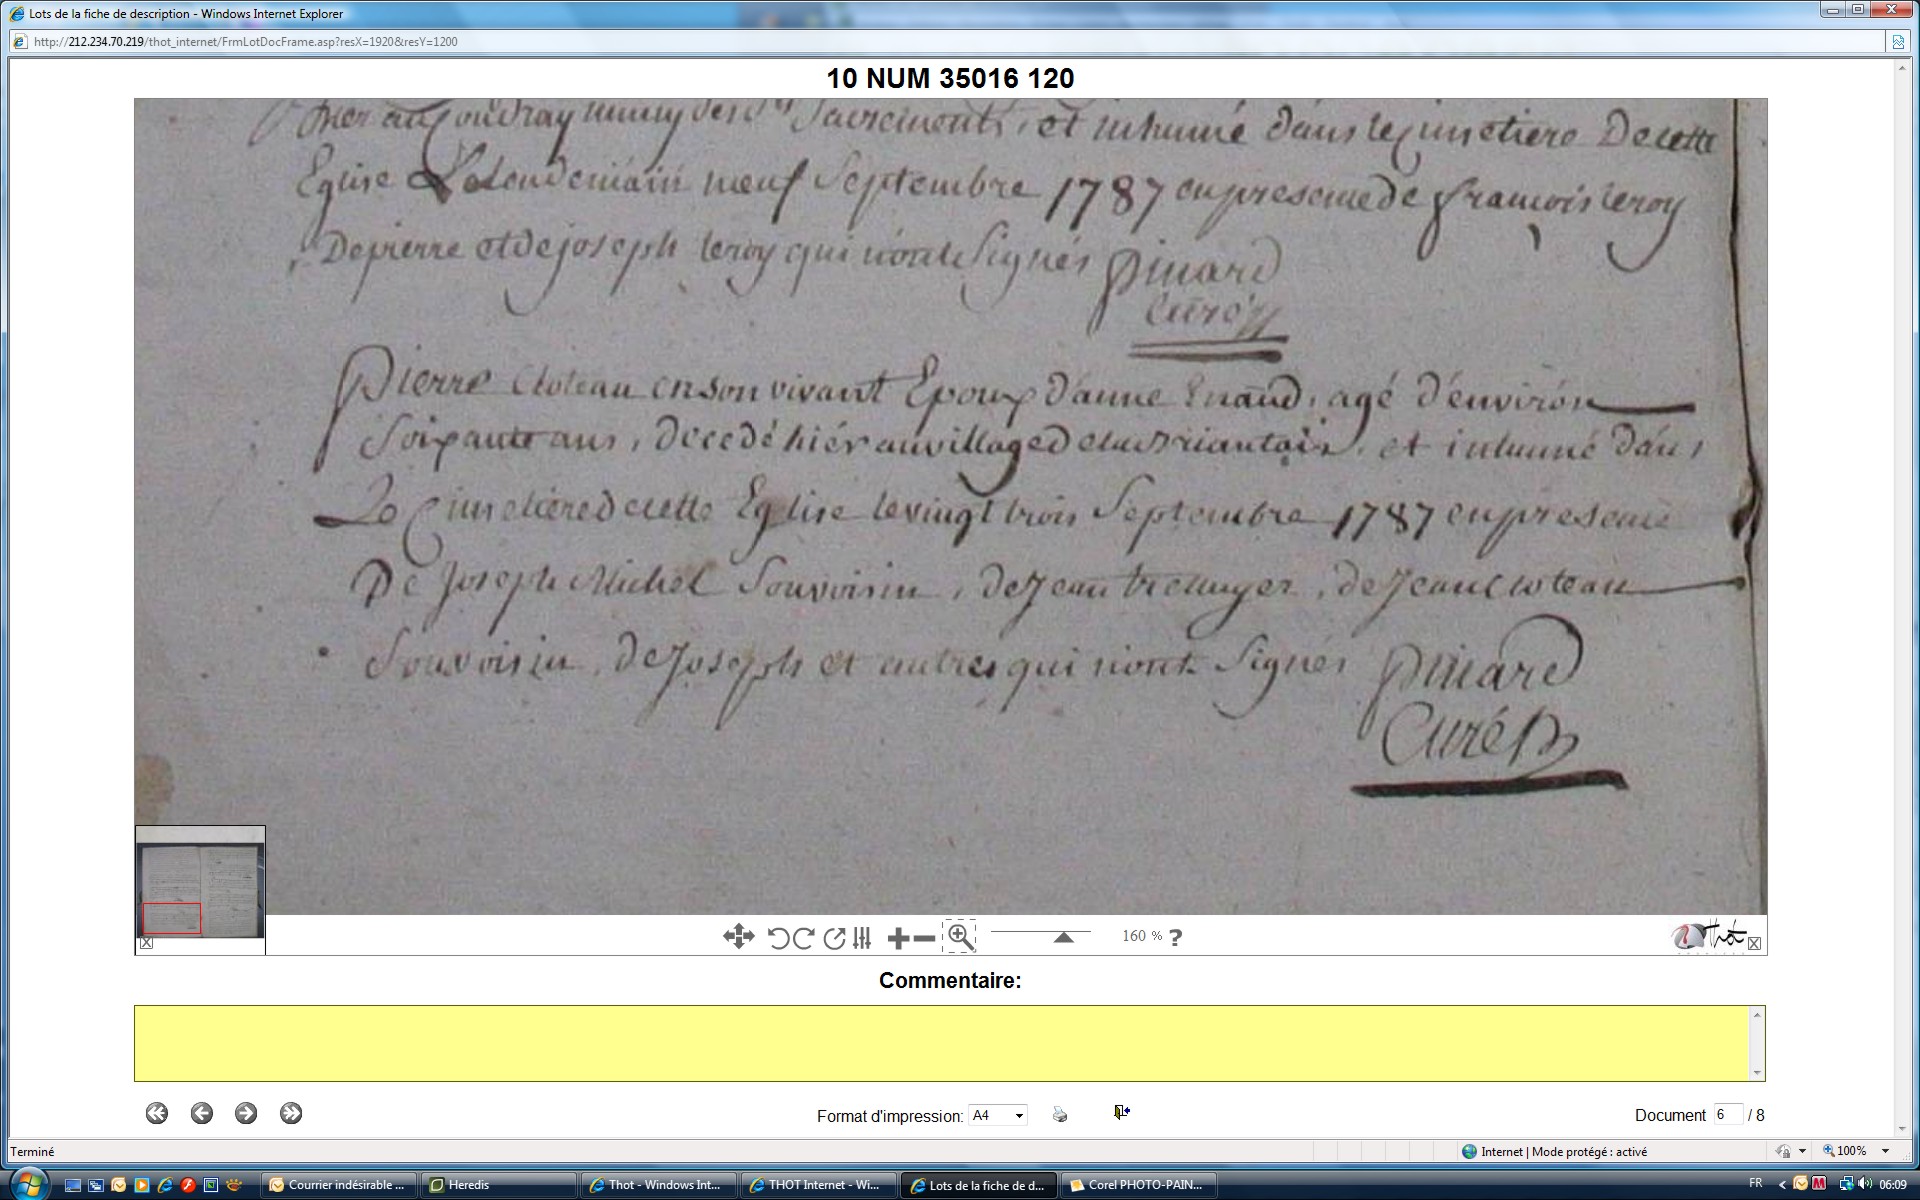 Lots de la fiche de description - Windows Internet Explorer
http://212.234.70.219/thot_internet/FrmLotDocFrame.asp?resX=1920&resY=1200
10 NUM 35016 120
hier au Coudray muny des Sts Sacrements, et inhumé dans le cimetiere De cette
Eglise Le lendemain neuf Septembre 1787 en presence de francois leroy
De pierre et de joseph leroy qui n'ont Signés pinard
Curé
Pierre Cloteau en son vivant Epoux d'anne Enaud, agé d'environ
Soixante ans, decedé hiér au village et inhumé dans
Le Cimetiére de cette Eglise le vingt trois Septembre 1787 en presence
De Joseph Michel Son voisin, de Jean trelluyer, de Jean Cloteau
Son voisin, de Joseph et autres qui n'ont Signés pinard
Curé
160 % ?
Thot
Commentaire:
Format d'impression: A4
Document 6 / 8
Terminé
Internet | Mode protégé : activé
100%
Courrier indésirable ...
Heredis
Thot - Windows Int...
THOT Internet - Wi...
Lots de la fiche de d...
Corel PHOTO-PAIN...
FR
06:09